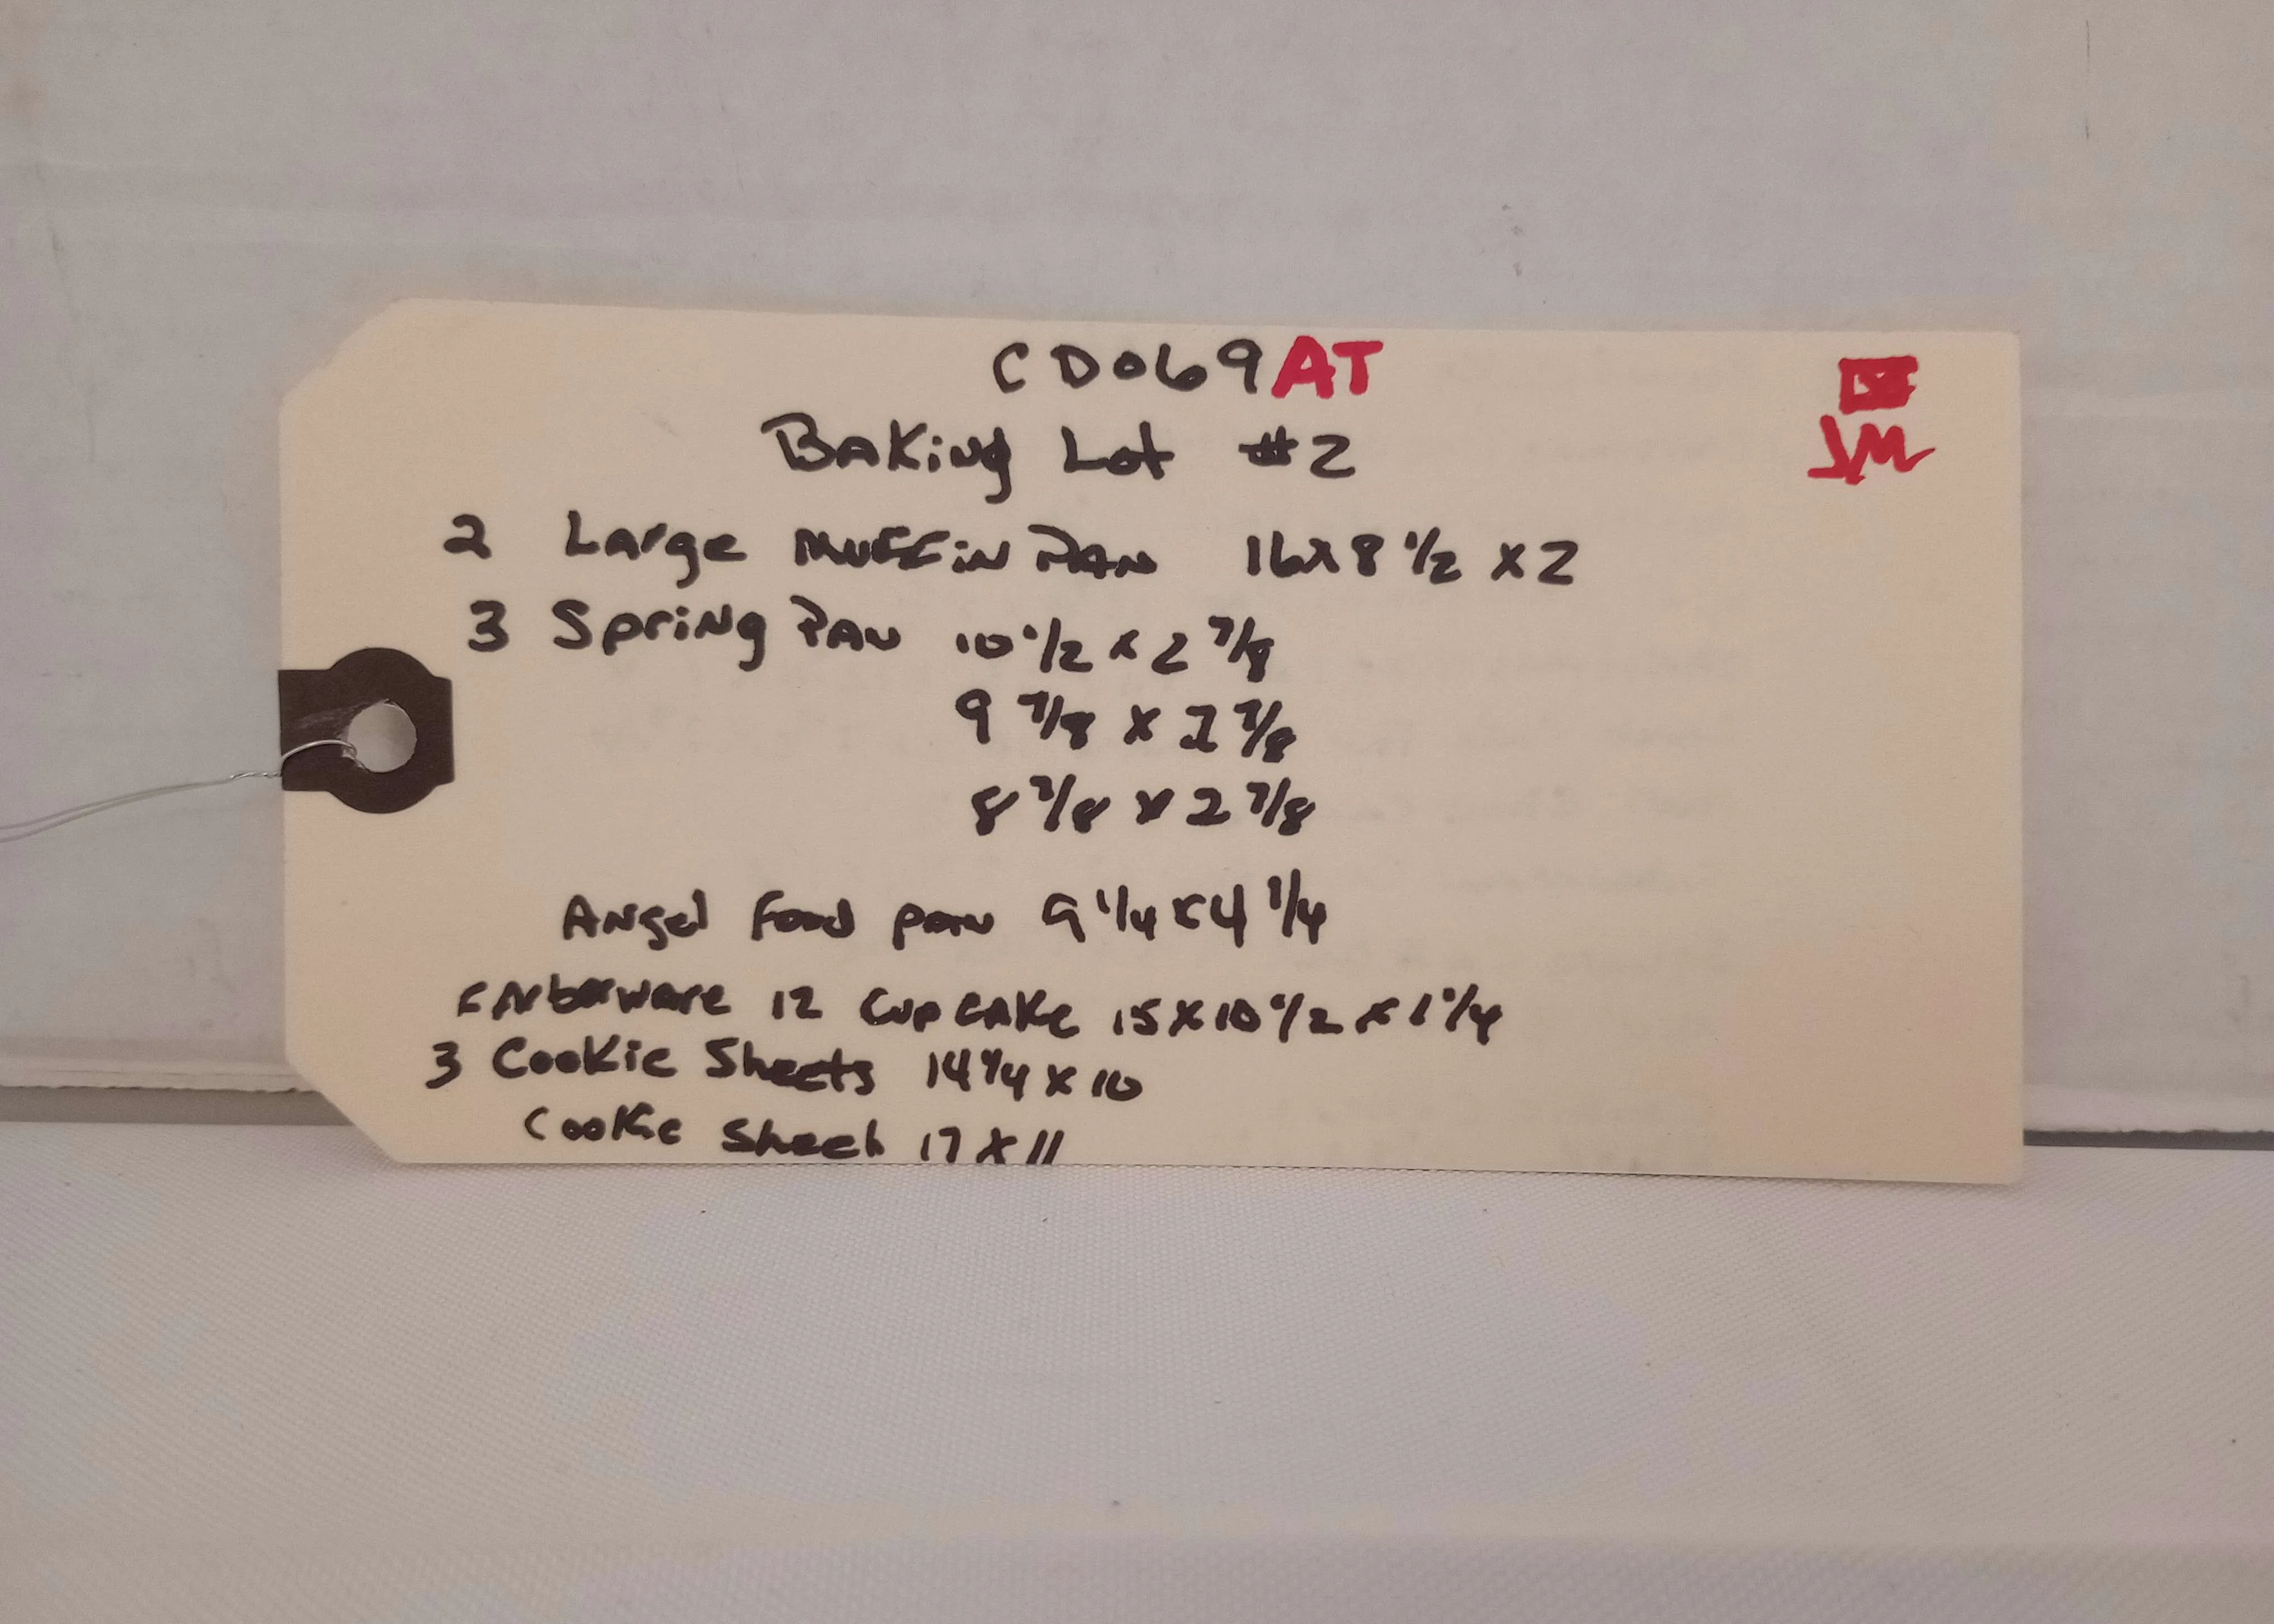 CD069AT
JM
Baking Lot #2
2 Large Muffin Pan 16x8 1/2 x 2
3 Spring Pan 10 1/2 x 2 7/8
9 7/8 x 2 7/8
8 7/8 x 2 7/8
Angel Food pan 9 1/4 x 4 1/4
12 Cupcake 15 x 10 1/2 x 1 1/4
3 Cookie Sheets 14 1/4 x 10
Cookie Sheet 17 x 11